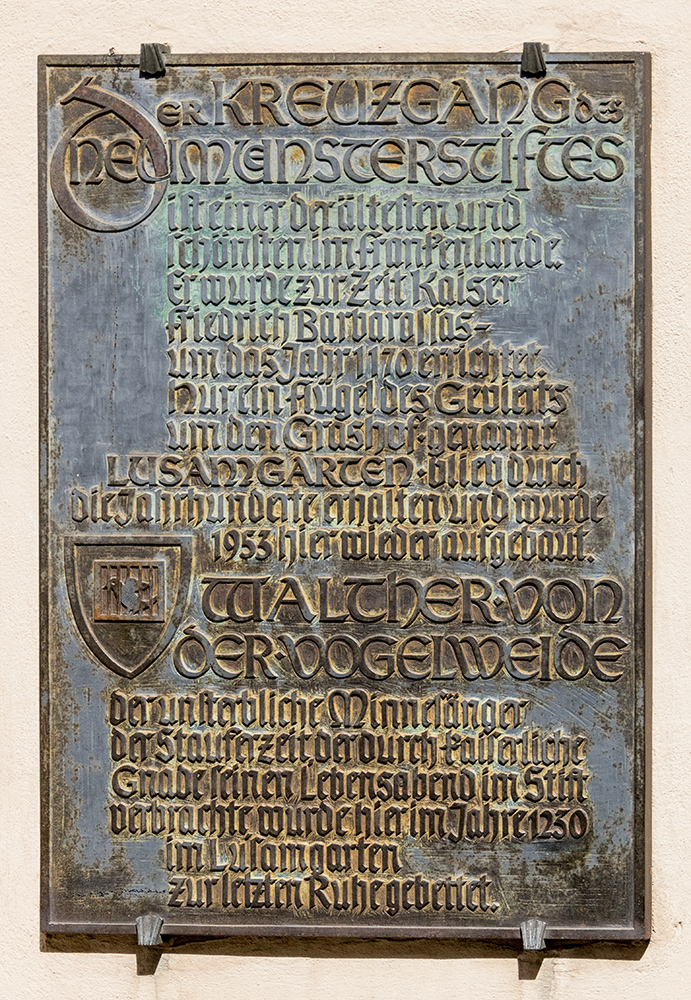 DER KREUZGANG des
NEUMÜNSTERSTIFTES
ist einer der ältesten und
schönsten im Frankenlande.
Er wurde zur Zeit Kaiser
Friedrich Barbarossas-
um das Jahr 1170 errichtet.
Nur ein Flügel des Gevierts
um den Grashof· genannt
LUSAMGARTEN · blieb durch
die Jahrhunderte erhalten und wurde
1953 hier wieder aufgebaut.
WALTHER·VON
DER·VOGELWEIDE
der unsterbliche Minnesänger
der Stauferzeit der durch kaiserliche
Gnade seinen Lebensabend im Stift
verbrachte wurde hier im Jahre 1230
im Lusamgarten
zur letzten Ruhe gebettet.